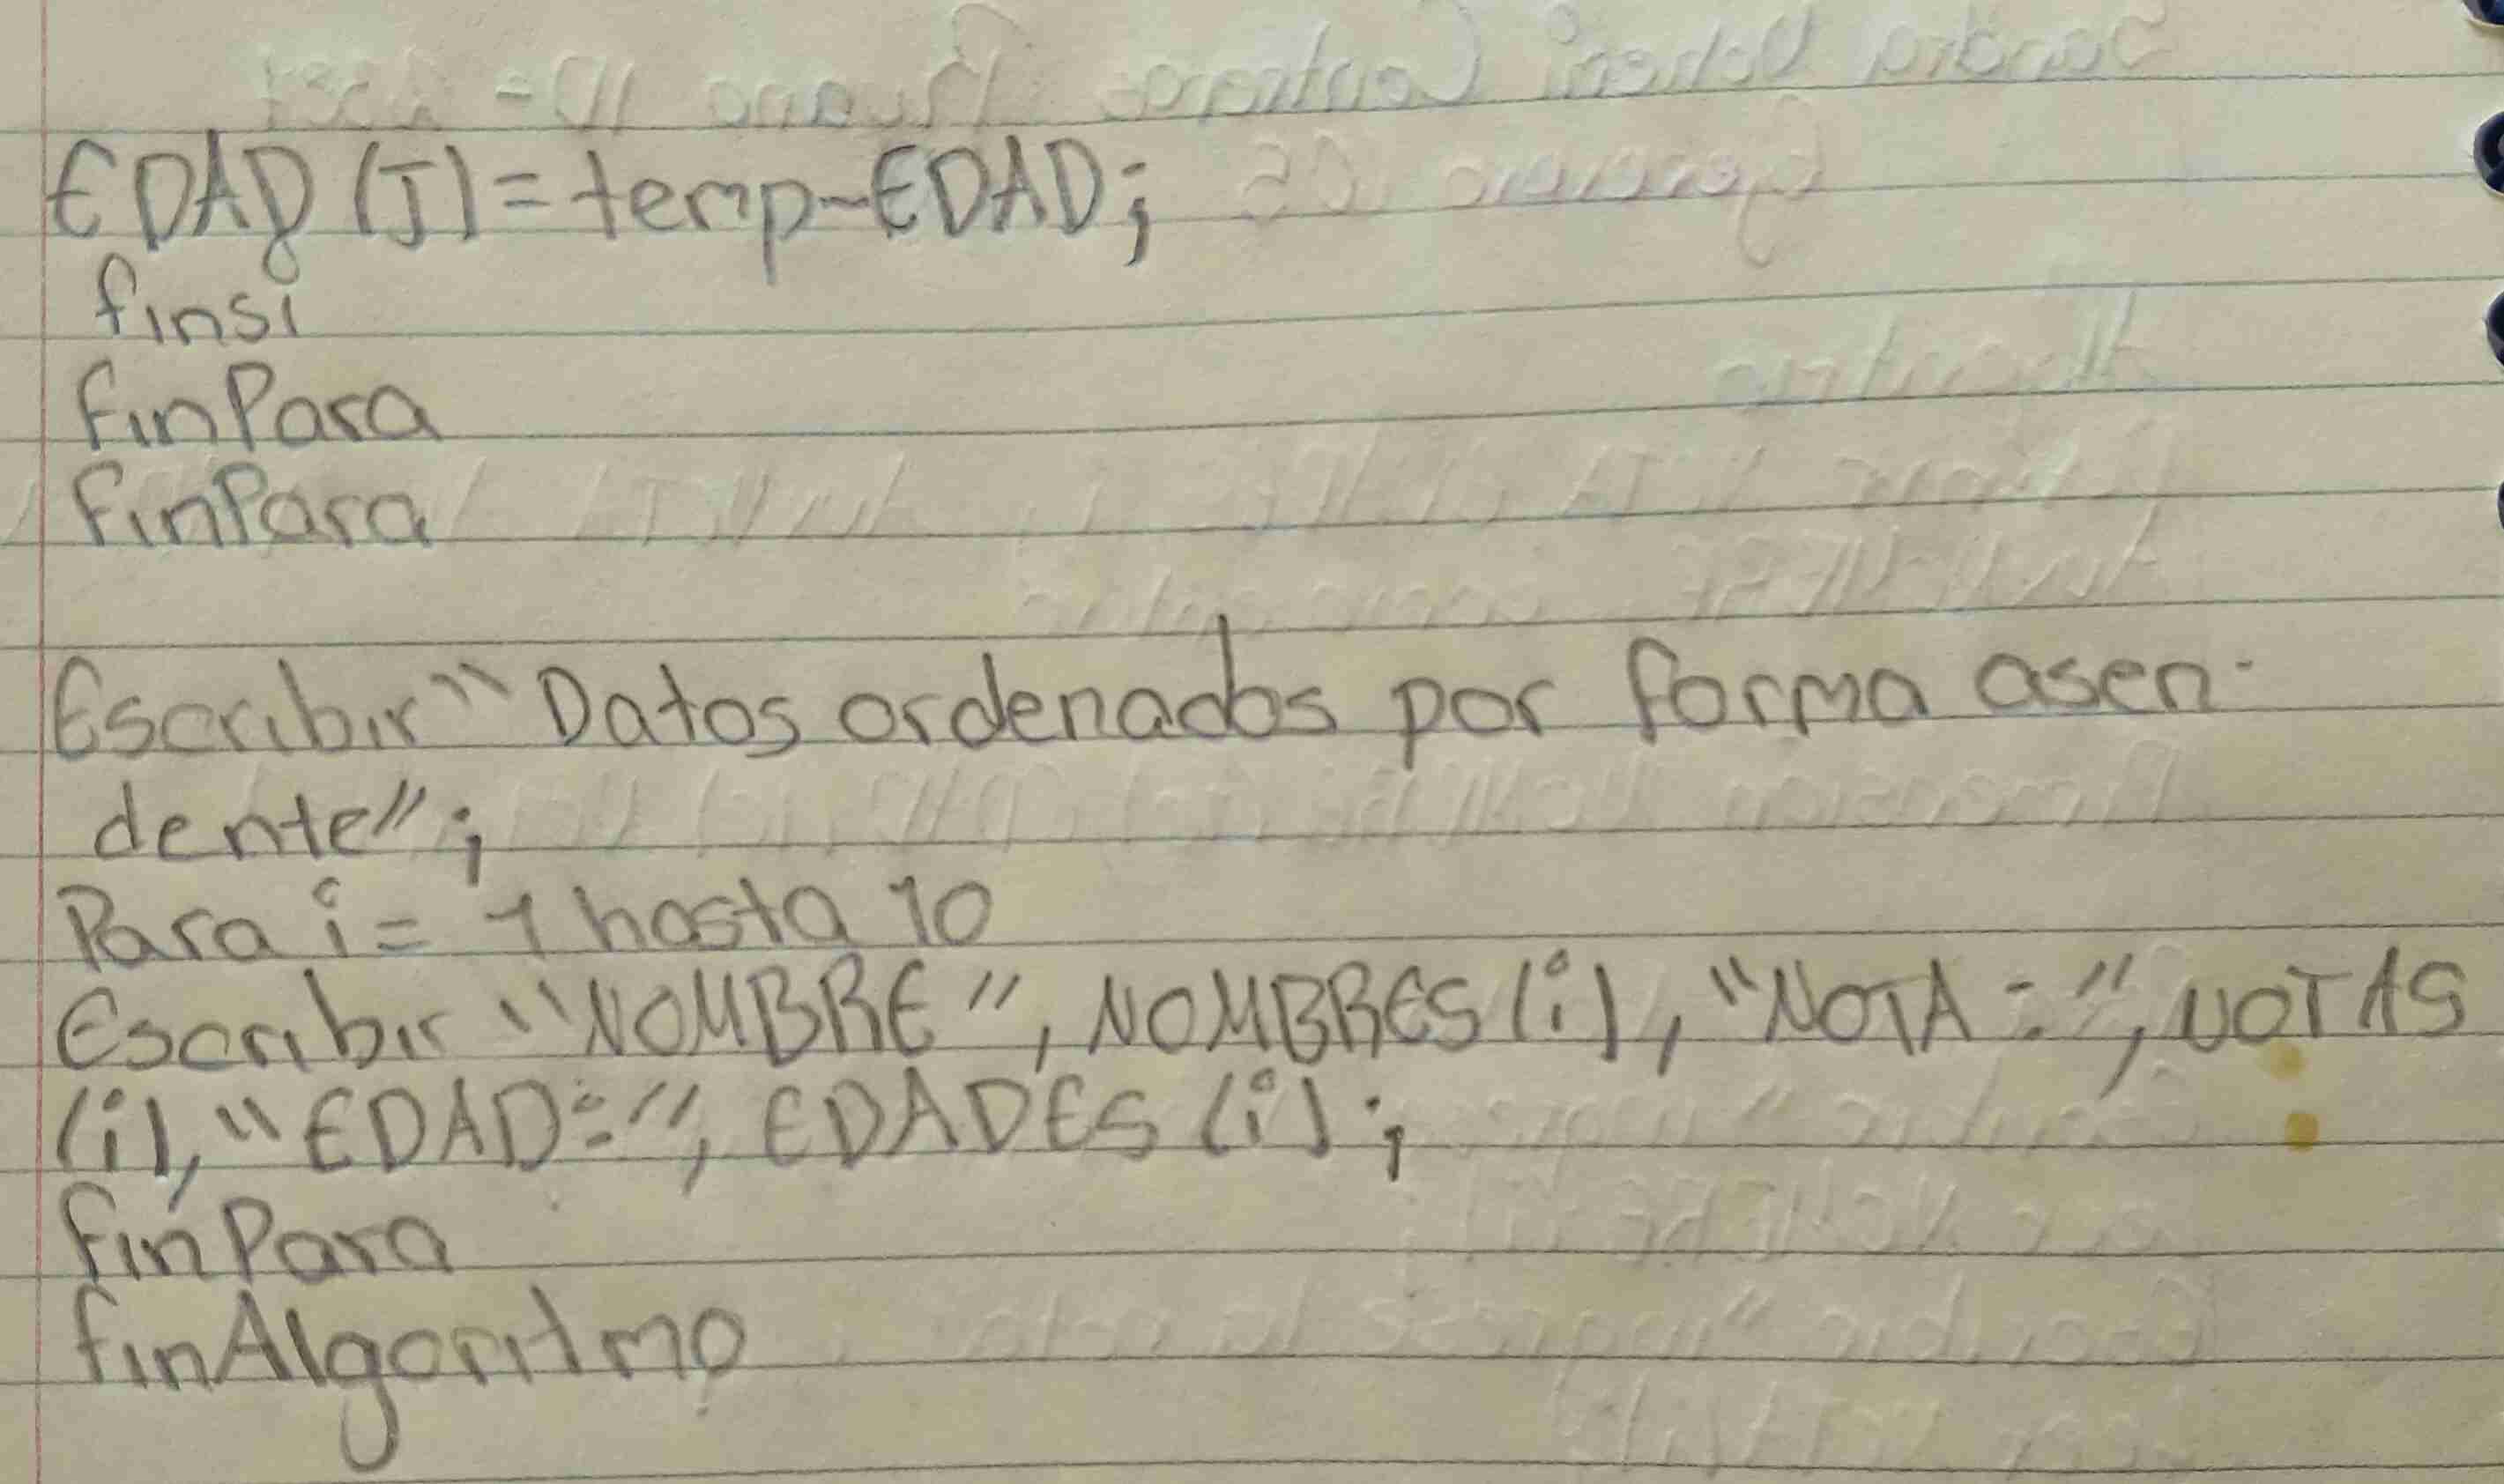 EDAD (J) = temp-EDAD;
finsi
finPara
finPara
Escribir "Datos ordenados por forma asen-
dente";
Para i = 1 hasta 10
Escribir "NOMBRE", NOMBRES (i), "NOTA:", NOTAS
(i), "EDAD:", EDADES (i);
finPara
finAlgoritmo